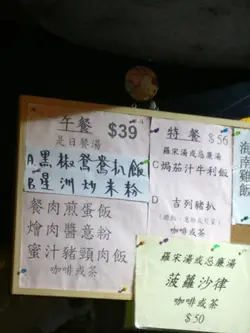 午餐 $39
是日餐湯
A黑椒鴛鴦扒飯
B星洲炒米粉
餐肉煎蛋飯
燴肉醬意粉
蜜汁豬頸肉飯
咖啡或茶
特餐 $56
羅宋湯或忌廉湯
C 焗茄汁牛利飯
D
吉列豬扒
咖啡或茶
羅宋湯或忌廉湯
菠蘿沙律
咖啡或茶
$50
海南雞飯